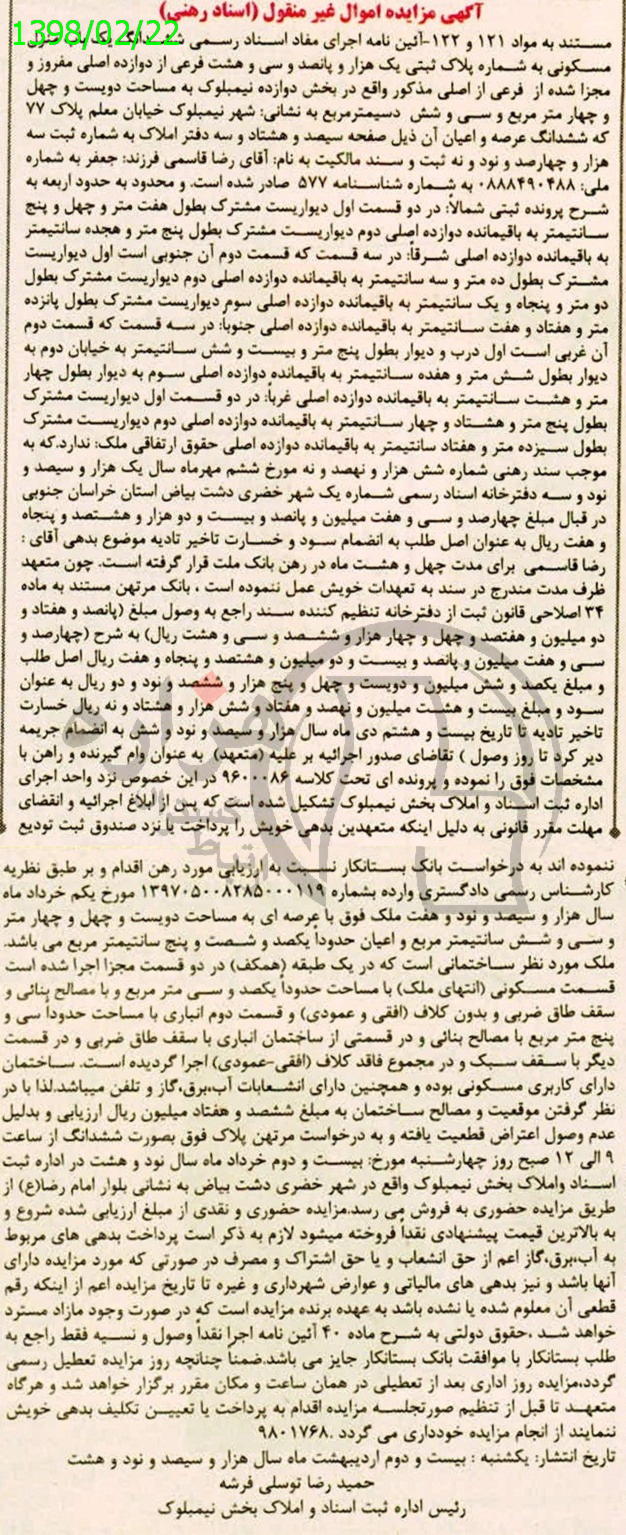 آگهی مزایده اموال غیر منقول (اسناد رهنی)
1398/02/22
مستند به مواد ۱۲۱ و ۱۲۲-آئین نامه اجرای مفاد اسناد رسمی ششدانگ یک باب منزل
مسکونی به شماره پلاک ثبتی یک هزار و پانصد و سی و هشت فرعی از دوازده اصلی مفروز و
مجزا شده از  فرعی از اصلی مذکور واقع در بخش دوازده نیمبلوک به مساحت دویست و چهل
و چهار متر مربع و سی و شش  دسیمترمربع به نشانی: شهر نیمبلوک خیابان معلم پلاک ۷۷
که ششدانگ عرصه و اعیان آن ذیل صفحه سیصد و هشتاد و سه دفتر املاک به شماره ثبت سه
هزار و چهارصد و نود و نه ثبت و سند مالکیت به نام: آقای رضا قاسمی فرزند: جعفر به شماره
ملی: ۰۸۸۸۴۹۰۴۸۸ به شماره شناسنامه ۵۷۷  صادر شده است. و محدود به حدود اربعه به
شرح پرونده ثبتی شمالاً: در دو قسمت اول دیواریست مشترک بطول هفت متر و چهل و پنج
سانتیمتر به باقیمانده دوازده اصلی دوم دیواریست مشترک بطول پنج متر و هجده سانتیمتر
به باقیمانده دوازده اصلی شرقاً: در سه قسمت که قسمت دوم آن جنوبی است اول دیواریست
مشترک بطول ده متر و سه سانتیمتر به باقیمانده دوازده اصلی دوم دیواریست مشترک بطول
دو متر و پنجاه و یک سانتیمتر به باقیمانده دوازده اصلی سوم دیواریست مشترک بطول پانزده
متر و هفتاد و هفت سانتیمتر به باقیمانده دوازده اصلی جنوباً: در سه قسمت که قسمت دوم
آن غربی است اول درب و دیوار بطول پنج متر و بیست و شش سانتیمتر به خیابان دوم به
دیوار بطول شش متر و هفده سانتیمتر به باقیمانده دوازده اصلی سوم به دیوار بطول چهار
متر و هشت سانتیمتر به باقیمانده دوازده اصلی غرباً: در دو قسمت اول دیواریست مشترک
بطول پنج متر و هشتاد و چهار سانتیمتر به باقیمانده دوازده اصلی دوم دیواریست مشترک
بطول سیزده متر و هفتاد سانتیمتر به باقیمانده دوازده اصلی حقوق ارتفاقی ملک: ندارد.که به
موجب سند رهنی شماره شش هزار و نهصد و نه مورخ ششم مهرماه سال یک هزار و سیصد و
نود و سه دفترخانه اسناد رسمی شماره یک شهر خضری دشت بیاض استان خراسان جنوبی
در قبال مبلغ چهارصد و سی و هفت میلیون و پانصد و بیست و دو هزار و هشتصد و پنجاه
و هفت ریال به عنوان اصل طلب به انضمام سود و خسارت تاخیر تادیه موضوع بدهی آقای :
رضا قاسمی  برای مدت چهل و هشت ماه در رهن بانک ملت قرار گرفته است. چون متعهد
ظرف مدت مندرج در سند به تعهدات خویش عمل ننموده است ، بانک مرتهن مستند به ماده
۳۴ اصلاحی قانون ثبت از دفترخانه تنظیم کننده سند راجع به وصول مبلغ (پانصد و هفتاد و
دو میلیون و هفتصد و چهل و چهار هزار و ششصد و سی و هشت ریال) به شرح (چهارصد و
سی و هفت میلیون و پانصد و بیست و دو میلیون و هشتصد و پنجاه و هفت ریال اصل طلب
و مبلغ یکصد و شش میلیون و دویست و چهل و پنج هزار و ششصد و نود و دو ریال به عنوان
سود و مبلغ بیست و هشت میلیون و نهصد و هفتاد و شش هزار و هشتاد و نه ریال خسارت
تاخیر تادیه تا تاریخ بیست و هشتم دی ماه سال هزار و سیصد و نود و شش به انضمام جریمه
دیر کرد تا روز وصول ) تقاضای صدور اجرائیه بر علیه (متعهد)  به عنوان وام گیرنده و راهن با
مشخصات فوق را نموده و پرونده ای تحت کلاسه ۹۶۰۰۰۸۶ در این خصوص نزد واحد اجرای
اداره ثبت اسناد و املاک بخش نیمبلوک تشکیل شده است که پس از ابلاغ اجرائیه و انقضای
مهلت مقرر قانونی به دلیل اینکه متعهدین بدهی خویش را پرداخت یا نزد صندوق ثبت تودیع
ننموده اند به درخواست بانک بستانکار نسبت به ارزیابی مورد رهن اقدام و بر طبق نظریه
کارشناس رسمی دادگستری وارده بشماره ۱۳۹۷۰۵۰۰۸۲۸۵۰۰۰۱۱۹ مورخ یکم خرداد ماه
سال هزار و سیصد و نود و هفت ملک فوق با عرصه ای به مساحت دویست و چهل و چهار متر
و سی و شش سانتیمتر مربع و اعیان حدوداً یکصد و شصت و پنج سانتیمتر مربع می باشد.
ملک مورد نظر ساختمانی است که در یک طبقه (همکف) در دو قسمت مجزا اجرا شده است
قسمت مسکونی (انتهای ملک) با مساحت حدوداً یکصد و سی متر مربع و با مصالح بنائی و
سقف طاق ضربی و بدون کلاف (افقی و عمودی) و قسمت دوم انباری با مساحت حدوداً سی و
پنج متر مربع با مصالح بنائی و در قسمتی از ساختمان انباری با سقف طاق ضربی و در قسمت
دیگر با سقف سبک و در مجموع فاقد کلاف (افقی-عمودی) اجرا گردیده است. ساختمان
دارای کاربری مسکونی بوده و همچنین دارای انشعابات آب،برق،گاز و تلفن میباشد.لذا با در
نظر گرفتن موقعیت و مصالح ساختمان به مبلغ ششصد و هفتاد میلیون ریال ارزیابی و بدلیل
عدم وصول اعتراض قطعیت یافته و به درخواست مرتهن پلاک فوق بصورت ششدانگ از ساعت
۹ الی ۱۲ صبح روز چهارشنبه مورخ: بیست و دوم خرداد ماه سال نود و هشت در اداره ثبت
اسناد واملاک بخش نیمبلوک واقع در شهر خضری دشت بیاض به نشانی بلوار امام رضا(ع) از
طریق مزایده حضوری به فروش می رسد.مزایده حضوری و نقدی از مبلغ ارزیابی شده شروع و
به بالاترین قیمت پیشنهادی نقداً فروخته میشود لازم به ذکر است پرداخت بدهی های مربوط
به آب،برق،گاز اعم از حق انشعاب و یا حق اشتراک و مصرف در صورتی که مورد مزایده دارای
آنها باشد و نیز بدهی های مالیاتی و عوارض شهرداری و غیره تا تاریخ مزایده اعم از اینکه رقم
قطعی آن معلوم شده یا نشده باشد به عهده برنده مزایده است که در صورت وجود مازاد مسترد
خواهد شد ،حقوق دولتی به شرح ماده ۴۰ آئین نامه اجرا نقداً وصول و نسیه فقط راجع به
طلب بستانکار با موافقت بانک بستانکار جایز می باشد.ضمناً چنانچه روز مزایده تعطیل رسمی
گردد،مزایده روز اداری بعد از تعطیلی در همان ساعت و مکان مقرر برگزار خواهد شد و هرگاه
متعهد تا قبل از تنظیم صورتجلسه مزایده اقدام به پرداخت یا تعیین تکلیف بدهی خویش
ننمایند از انجام مزایده خودداری می گردد .۹۸۰۱۷۶۸
تاریخ انتشار: یکشنبه : بیست و دوم اردیبهشت ماه سال هزار و سیصد و نود و هشت
حمید رضا توسلی فرشه
رئیس اداره ثبت اسناد و املاک بخش نیمبلوک